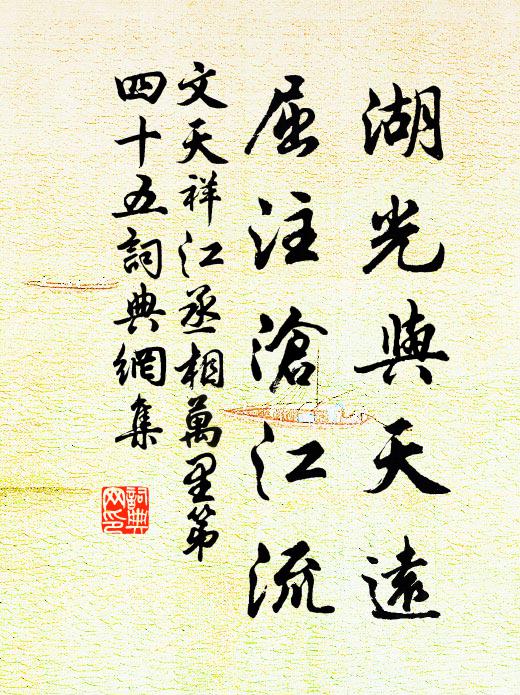 湖光與天遠
屈注滄江流
文天祥江丞相萬里第
四十五詞典網集
詞典
网印